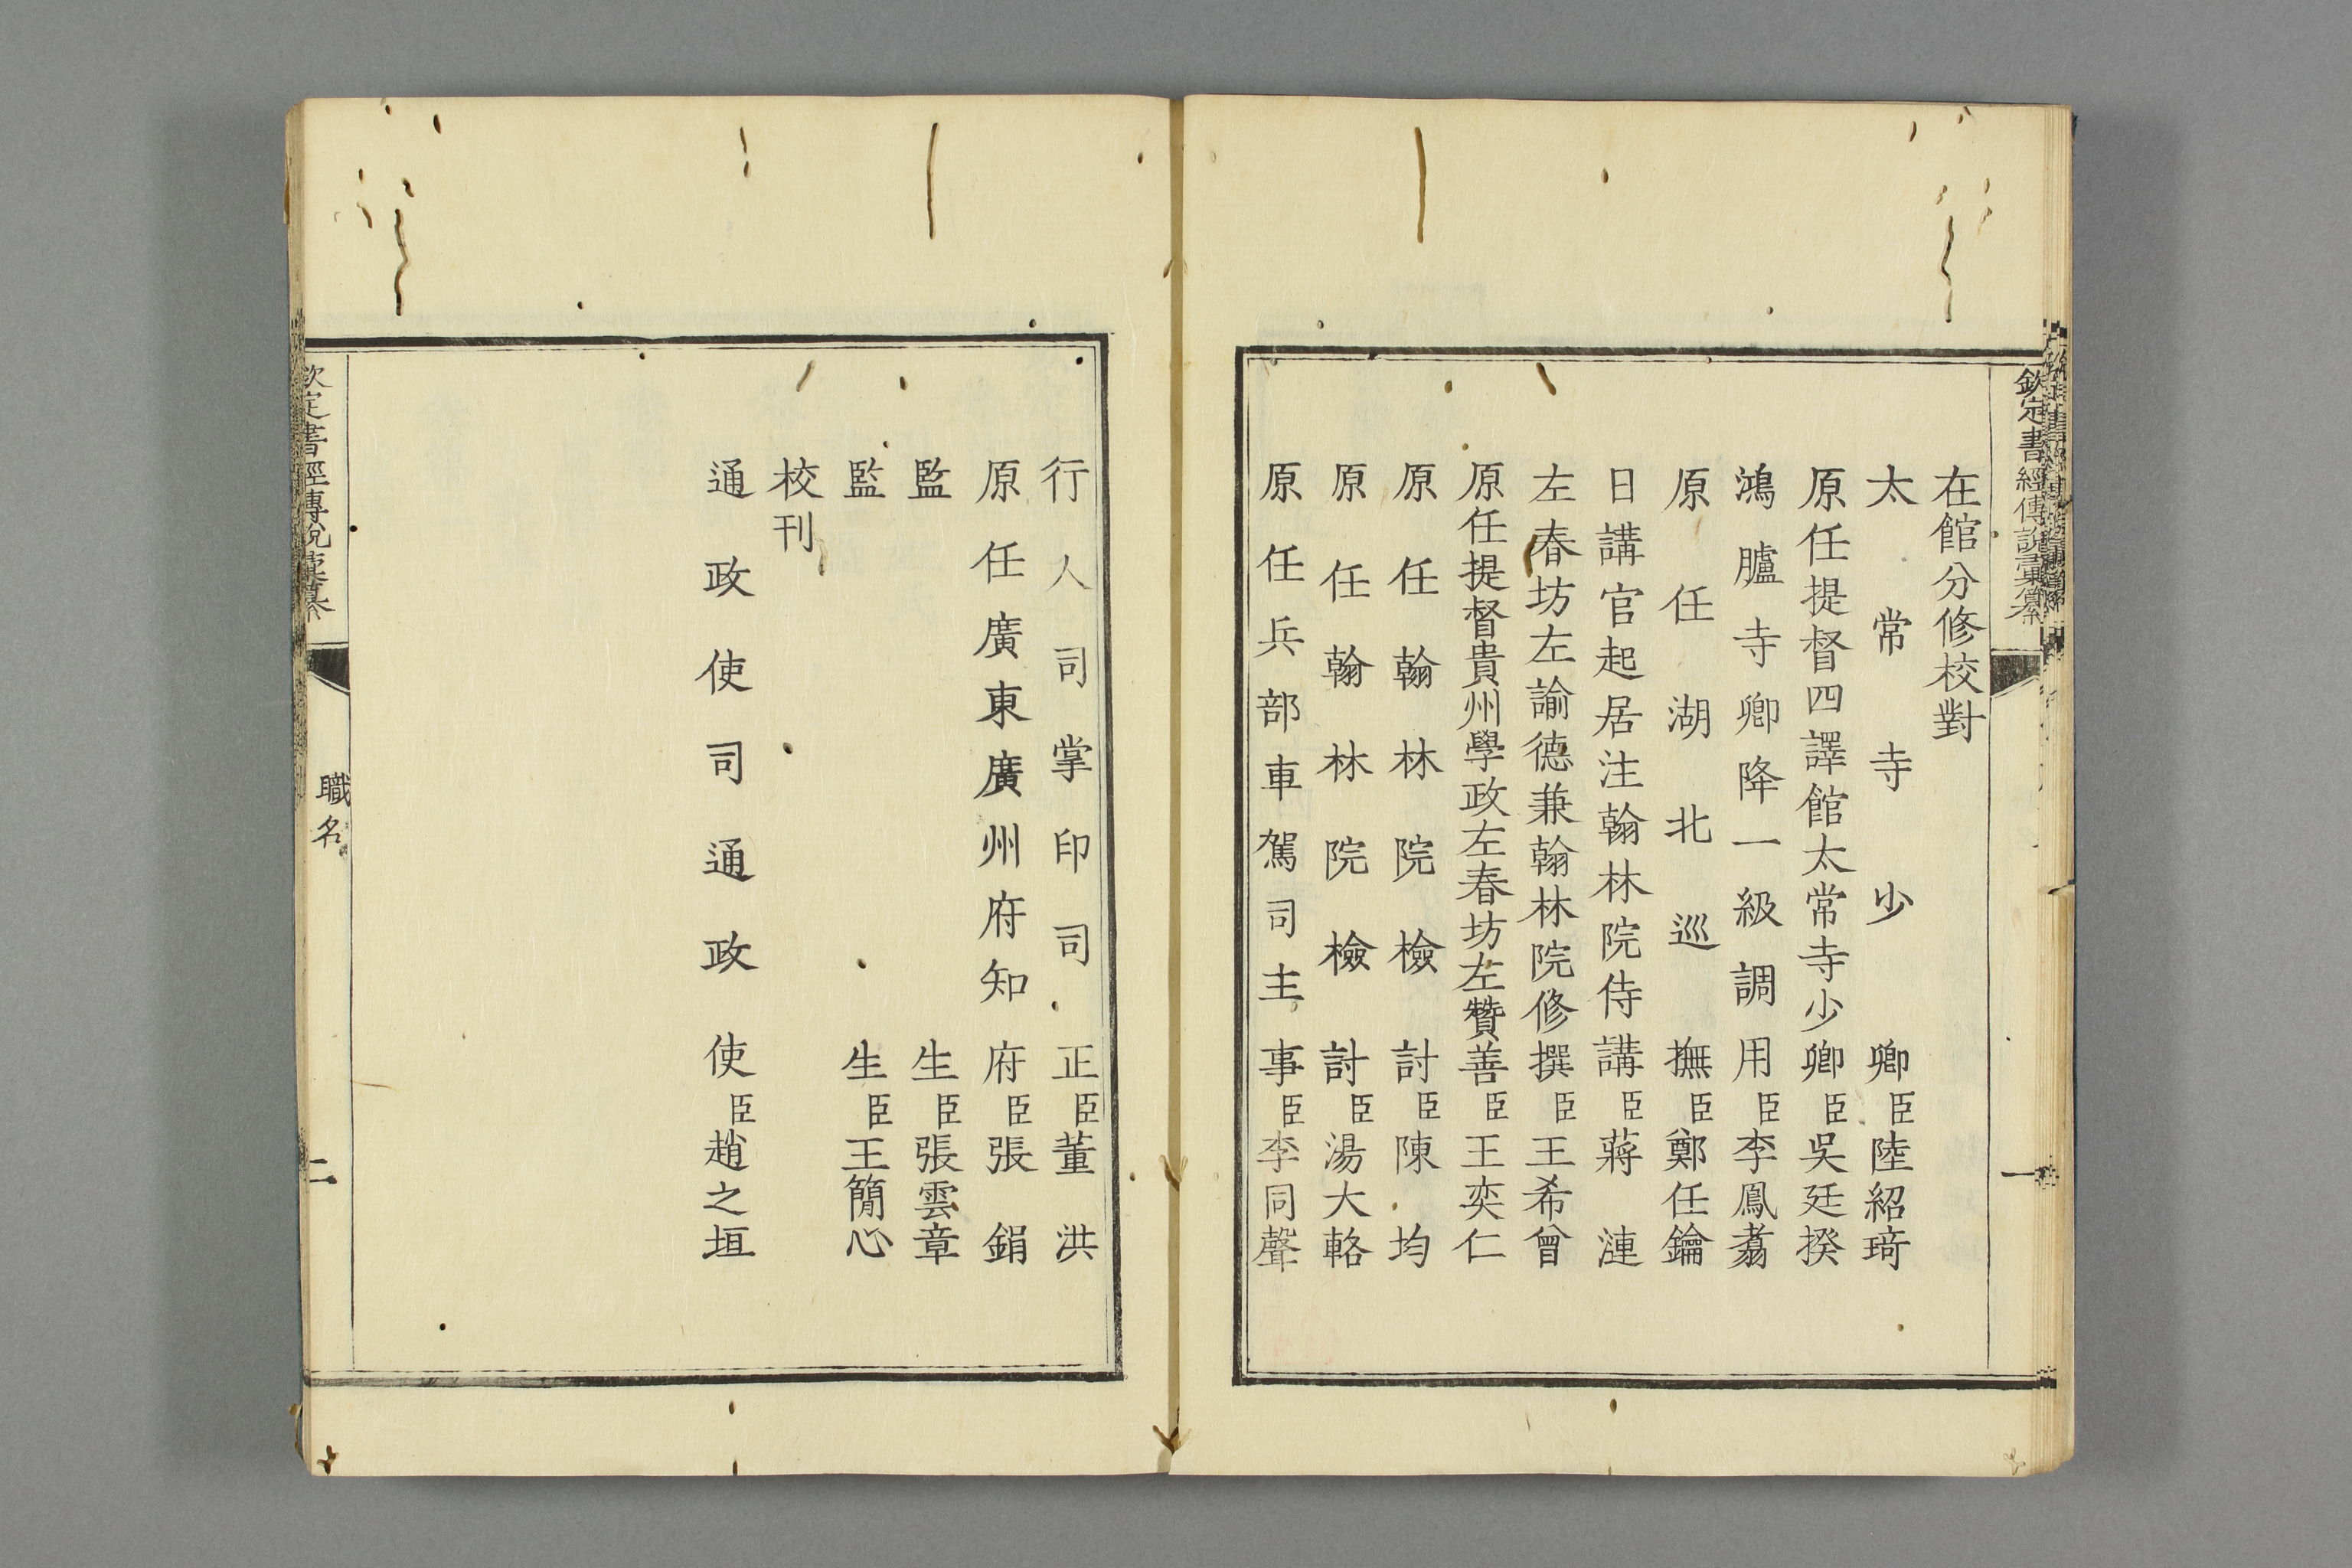 欽定書經傳說彙纂
一
在館分修校對
太常寺少卿臣陸紹琦
原任提督四譯館太常寺少卿臣吳廷揆
鴻臚寺卿降一級調用臣李鳳翥
原任湖北巡撫臣鄭任鑰
日講官起居注翰林院侍講臣蔣漣
左春坊左諭德兼翰林院修撰臣王希曾
原任提督貴州學政左春坊左贊善臣王奕仁
原任翰林院檢討臣陳均
原任翰林院檢討臣湯大輅
原任兵部車駕司主事臣李同聲
行人司掌印司正臣董洪
原任廣東廣州府知府臣張鋗
監生臣張雲章
監生臣王簡心
校刊
通政使司通政使臣趙之垣
欽定書經傳說彙纂
職名
二